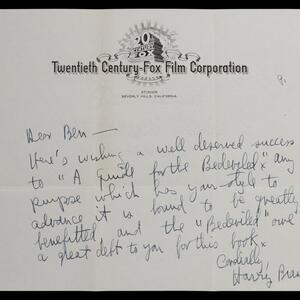 20th
Twentieth Century-Fox Film Corporation
STUDIOS
BEVERLY HILLS, CALIFORNIA
9.
Dear Ben —
Here's wishing a well deserved success
to "A guide for the Bedevilled". Any
purpose which has your style to
advance it is bound to be greatly
benefitted, and the "Bedeviled" owe
a great debt to you for this book.
Cordially,
Harry